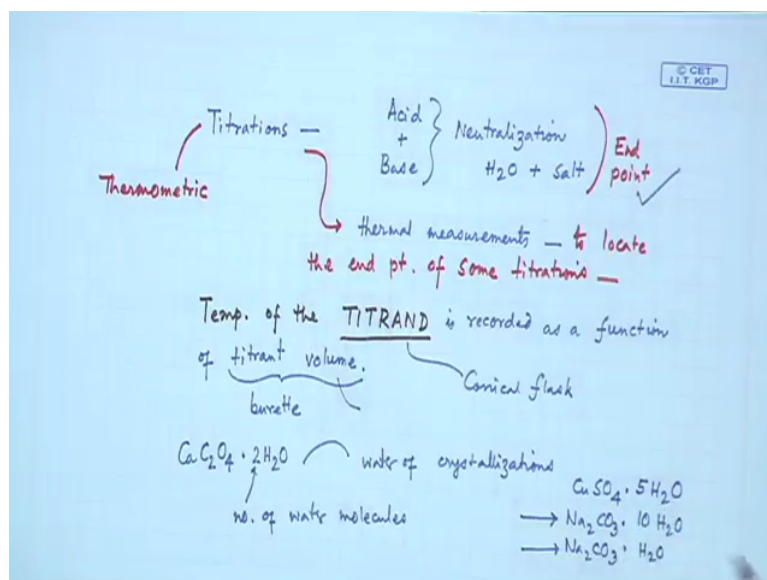 © CET
I.I.T. KGP
Titrations —
Acid
+
Base
Neutralization
H₂O + Salt
End
point
Thermometric
thermal measurements — to locate
the end pt. of some titrations —
Temp. of the TITRAND is recorded as a function
of titrant volume.
Conical flask
burette
CaC₂O₄ · 2H₂O
water of crystallizations
no. of water molecules
CuSO₄ · 5H₂O
→ Na₂CO₃ · 10 H₂O
→ Na₂CO₃ · H₂O